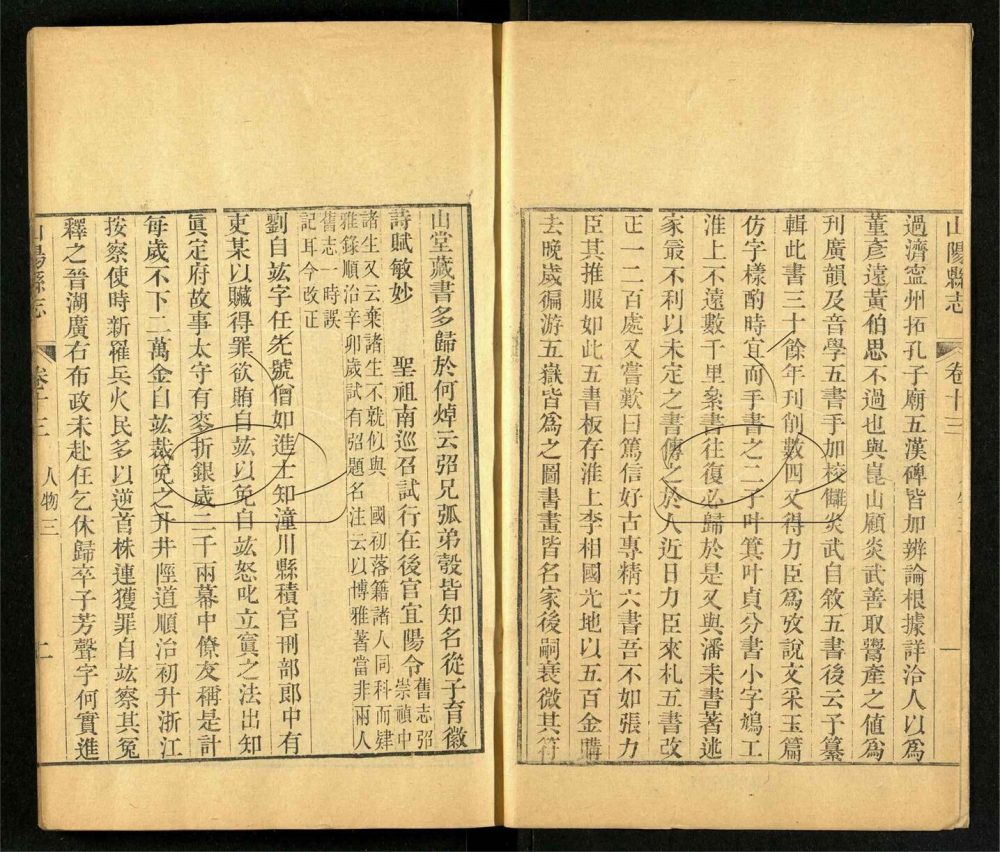 山陽縣志
卷十三
一
過濟寧州拓孔子廟五漢碑皆加辨論根據詳洽人以爲
董彥遠黃伯思不過也與崑山顧炎武善取鬻產之值爲
刊廣韻及音學五書手加校讎炎武自敘五書後云予纂
輯此書三十餘年刊削數四又得力臣爲攷說文采玉篇
仿字樣酌時宜而手書之二子叶箕叶貞分書小字鳩工
淮上不遠數千里累書往復必歸於是又與潘耒書著述
家最不利以未定之書傳之於人近日力臣來札五書改
正一二百處又嘗歎曰篤信好古專精六書吾不如張力
臣其推服如此五書板存淮上李相國光地以五百金購
去晚歲徧游五嶽皆爲之圖書畫皆名家後嗣衰微其符
山堂藏書多歸於何焯云弨兄弧弟彀皆知名從子育徽
詩賦敏妙　聖祖南巡召試行在後官宜陽令舊志弨崇禎中
諸生又云棄諸生不就似與　國初落籍諸人同科而肄
雅錄順治辛卯歲試有弨題名注云以博雅著當非兩人
舊志一時誤
記耳今改正
劉自竑字任先號僧如進士知潼川縣積官刑部郎中有
吏某以贓得罪欲賄自竑以免自竑怒叱立寘之法出知
眞定府故事太守有麥折銀歲二千兩幕中僚友稱是計
每歲不下二萬金自竑裁免之升井陘道順治初升浙江
按察使時新罹兵火民多以逆首株連獲罪自竑察其冤
釋之晉湖廣右布政未赴任乞休歸卒子芳聲字何實進
山陽縣志
卷十三
人物三
二